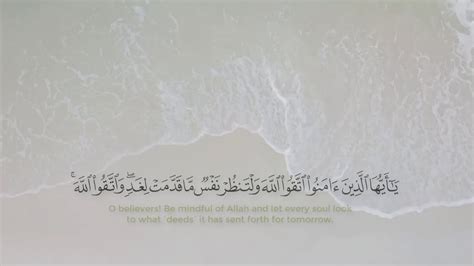 يَـٰٓأَيُّهَا ٱلَّذِينَ ءَامَنُوا۟ ٱتَّقُوا۟ ٱللَّهَ وَلْتَنظُرْ نَفْسٌ مَّا قَدَّمَتْ لِغَدٍ ۖ وَٱتَّقُوا۟ ٱللَّهَ ۚ
O believers! Be mindful of Allah and let every soul look
to what deeds it has sent forth for tomorrow.